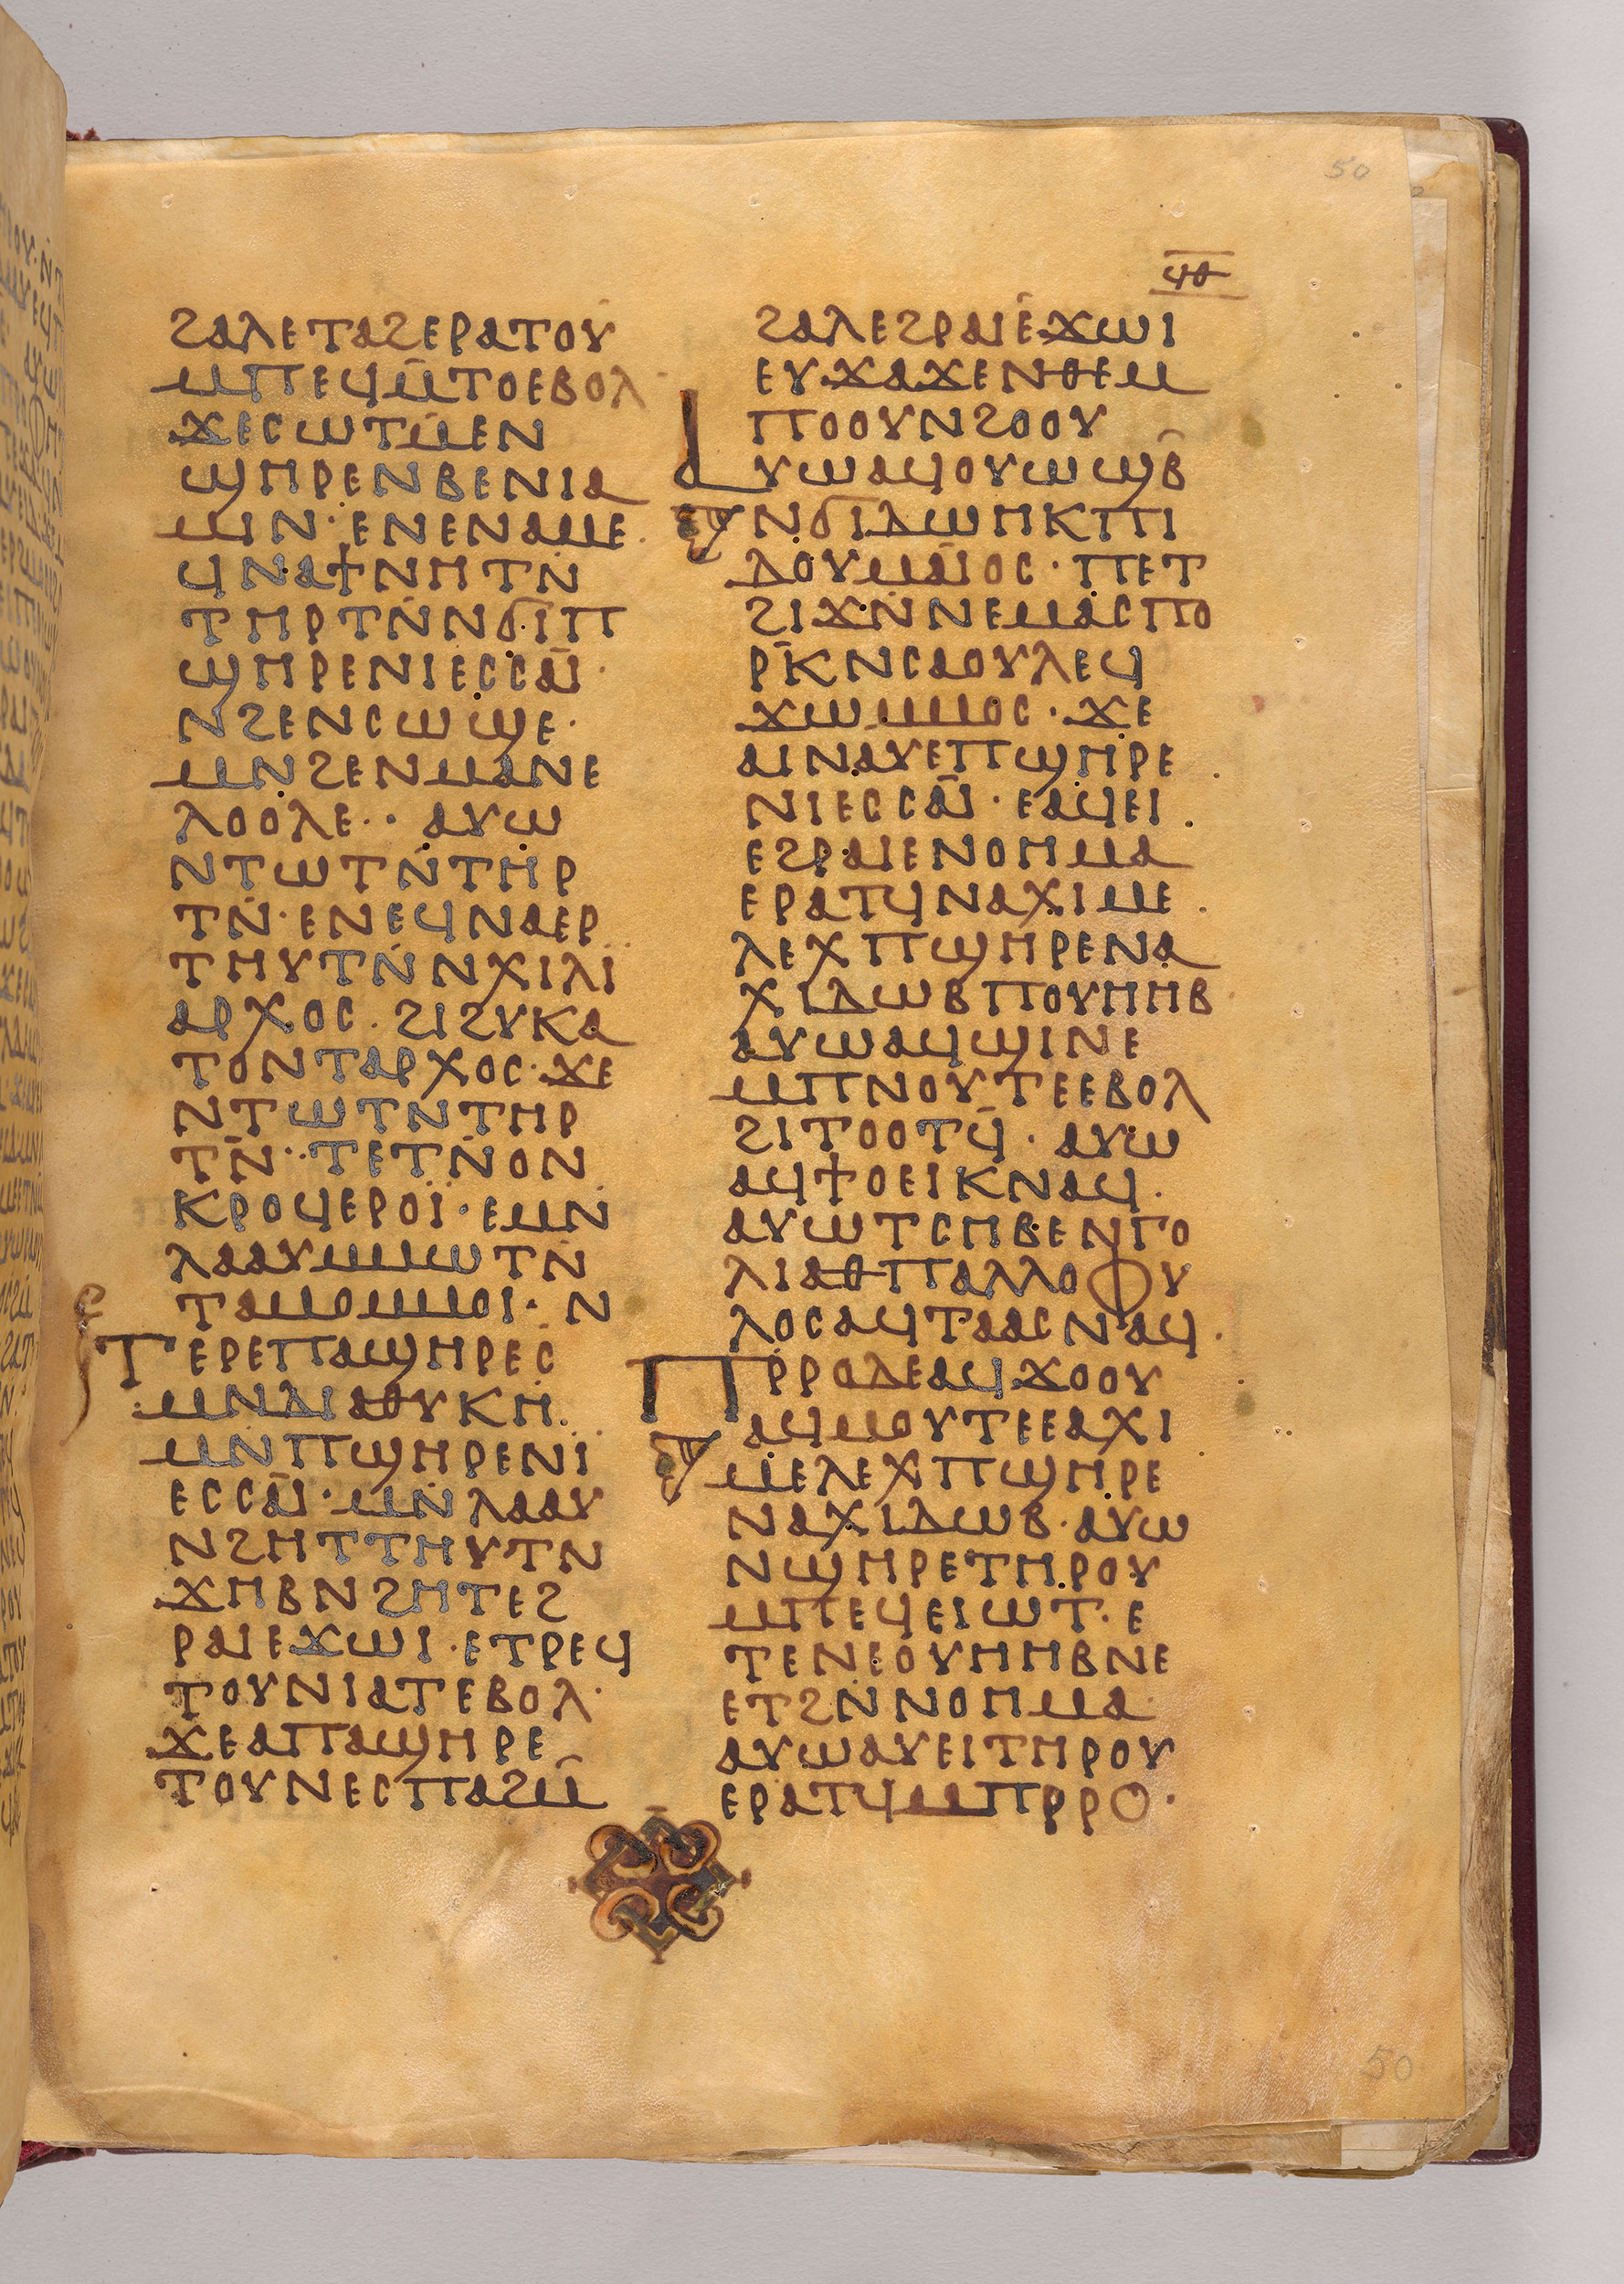 50
ϥⲑ
ϩⲁⲗⲉⲧⲁϩⲉⲣⲁⲧⲟⲩ
ⲙⲡⲉϥⲙ̅ⲧⲟⲉⲃⲟⲗ
ϫⲉⲥⲱⲧⲙ̅ⲉⲛ
ϣⲏⲣⲉⲛⲃⲉⲛⲓⲁ
ⲙⲓⲛ· ⲉⲛⲉⲛⲁⲙⲉ
ϥⲛⲁϯⲛⲏⲧⲛ̇
ⲧⲏⲣⲧⲛ̇ⲛϭⲓⲡ
ϣⲏⲣⲉⲛⲓⲉⲥⲥⲁⲓ̈·
ⲛϩⲉⲛⲥⲱϣⲉ·
ⲙⲛϩⲉⲛⲙⲁⲛⲉ
ⲗⲟⲟⲗⲉ·· ⲁⲩⲱ
ⲛⲧⲱⲧⲛ̇ⲧⲏⲣ
ⲧⲛ̇· ⲉⲛⲉϥⲛⲁⲉⲣ
ⲧⲏⲩⲧⲛ̇ⲛⲭⲓⲗⲓ̈
ⲁⲣⲭⲟⲥ· ϩⲓϩⲩⲕⲁ
ⲧⲟⲛⲧⲁⲣⲭⲟⲥ· ϫⲉ
ⲛⲧⲱⲧⲛⲧⲏⲣ
ⲧⲛ̅·· ⲧⲉⲧⲛ̇ⲟⲛ
ⲕⲣⲟϥⲉⲣⲟⲓ̈· ⲉⲙⲛ̇
ⲗⲁⲁⲩⲙⲙⲱⲧⲛ̇
ⲧⲁⲙⲟⲙⲙⲟⲓ· ⲛ
ⲧⲉⲣⲉⲡⲁϣⲏⲣⲉⲥ̇
ⲙⲛⲇⲓⲁⲑⲩⲕⲏ
ⲙⲛⲡϣⲏⲣⲉⲛⲓ̇
ⲉⲥⲥⲁⲓ̈· ⲙⲛ̇ⲗⲁⲁⲩ
ⲛϩⲏⲧⲧⲏⲩⲧⲛ
ϫⲏⲃⲛϩⲏⲧⲉϩ
ⲣⲁⲓⲉϫⲱⲓ· ⲉⲧⲣⲉϥ
ⲧⲟⲩⲛⲓⲁⲧⲉⲃⲟⲗ·
ϫⲉⲁⲡⲁϣⲏⲣⲉ
ⲧⲟⲩⲛⲉⲥⲡⲁϩⲙ̅
ϩⲁⲗⲉϩⲣⲁⲓⲉ̅ϫⲱⲓ
ⲉⲩϫⲁϫⲉⲛⲑⲉⲙ
ⲡⲟⲟⲩⲛϩⲟⲟⲩ
ⲁⲩⲱⲁϥⲟⲩⲱϣⲃ̅
ⲛϭⲓⲇⲱⲏⲕⲡⲓ
ⲇⲟⲩⲙⲁⲓ̈ⲟⲥ· ⲡⲉⲧ
ϩⲓϫⲛ̇ⲛⲉⲙⲁⲥⲡⲟ
ⲣ̅ⲕⲛⲥⲁⲟⲩⲗⲉϥ
ϫⲱⲙⲙⲟⲥ· ϫⲉ
ⲁⲓⲛⲁⲩⲉⲡϣⲏⲣⲉ
ⲛⲓⲉⲥⲥⲁⲓ̈· ⲉⲁϥⲉⲓ
ⲉϩⲣⲁⲓⲉⲛⲟⲏⲙⲁ
ⲉⲣⲁⲧϥⲛⲁⲭⲓⲙⲉ
ⲗⲉⲭⲡϣⲏⲣⲉⲛⲁ
ⲭⲓⲇⲱⲃⲡⲟⲩⲏⲏⲃ
ⲁⲩⲱⲁϥϣⲓⲛⲉ
ⲙⲡⲛⲟⲩⲧⲉⲉⲃⲟⲗ
ϩⲓⲧⲟⲟⲧϥ̅· ⲁⲩⲱ
ⲁϥϯⲟⲉⲓⲕⲛⲁϥ·
ⲁⲩⲱⲧⲥⲏⲃⲉⲛⲅⲟ
ⲗⲓⲁⲑⲡⲁⲗⲗⲟⲫⲩ
ⲗⲟⲥⲁϥⲧⲁⲁⲥⲛⲁϥ·
ⲡⲣⲣⲟⲇⲉⲁϥϫⲟⲟⲩ
ⲁϥⲙⲟⲩⲧⲉⲉⲁⲭⲓ
ⲙⲉⲗⲉⲭⲡϣⲏⲣⲉ
ⲛⲁⲭⲓⲇⲱⲃ· ⲁⲩⲱ
ⲛϣⲏⲣⲉⲧⲏⲣⲟⲩ
ⲙⲡⲉϥⲉⲓⲱⲧ· ⲉ
ⲧⲉⲛⲉⲟⲩⲏⲏⲃⲛⲉ
ⲉⲧϩⲛ̇ⲛⲟⲏⲙⲁ·
ⲁⲩⲱⲁⲩⲉⲓⲧⲏⲣⲟⲩ
ⲉⲣⲁⲧϥⲙⲡⲣⲣⲟ·
50